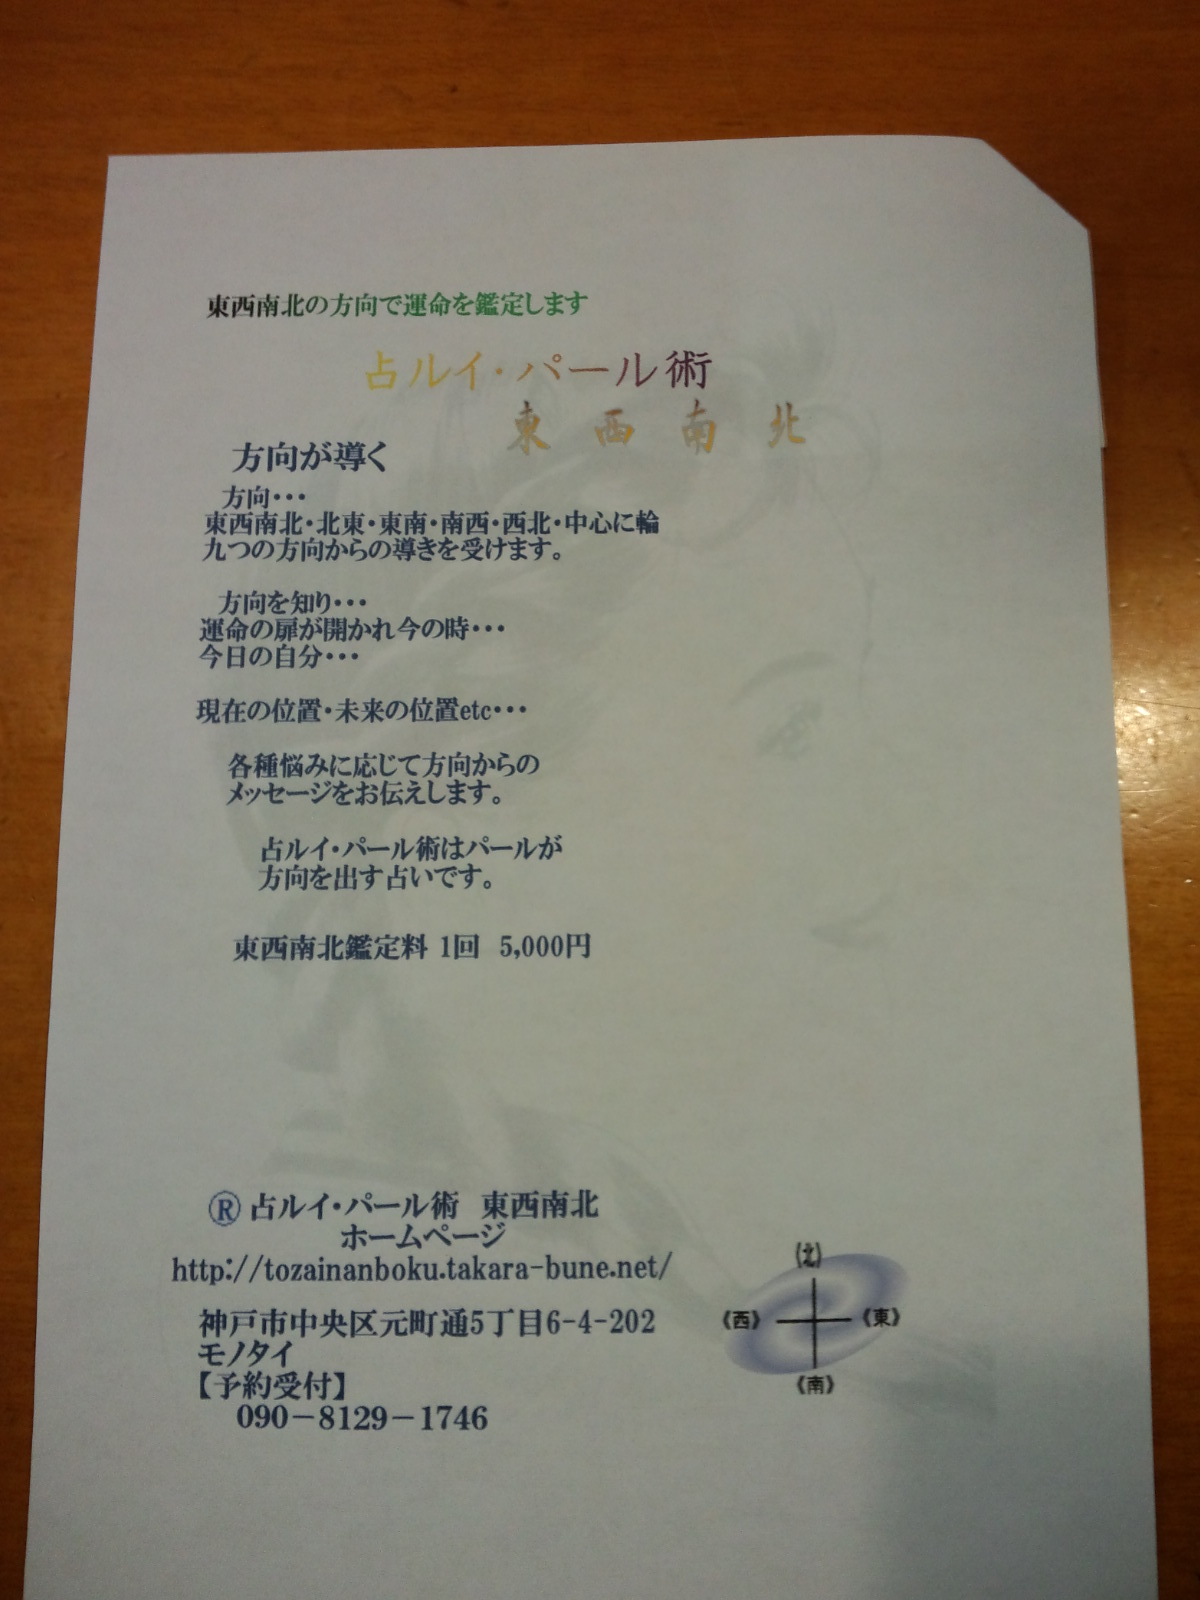 東西南北の方向で運命を鑑定します
占ルイ・パール術
東西南北
方向が導く
方向・・・
東西南北・北東・東南・南西・西北・中心に輪
九つの方向からの導きを受けます。
方向を知り・・・
運命の扉が開かれ今の時・・・
今日の自分・・・
現在の位置・未来の位置etc・・・
各種悩みに応じて方向からの
メッセージをお伝えします。
占ルイ・パール術はパールが
方向を出す占いです。
東西南北鑑定料 1回 5,000円
Ⓡ 占ルイ・パール術 東西南北
ホームページ
http://tozainanboku.takara-bune.net/
神戸市中央区元町通5丁目6-4-202
モノタイ
【予約受付】
090－8129－1746
《北》
《西》
《東》
《南》